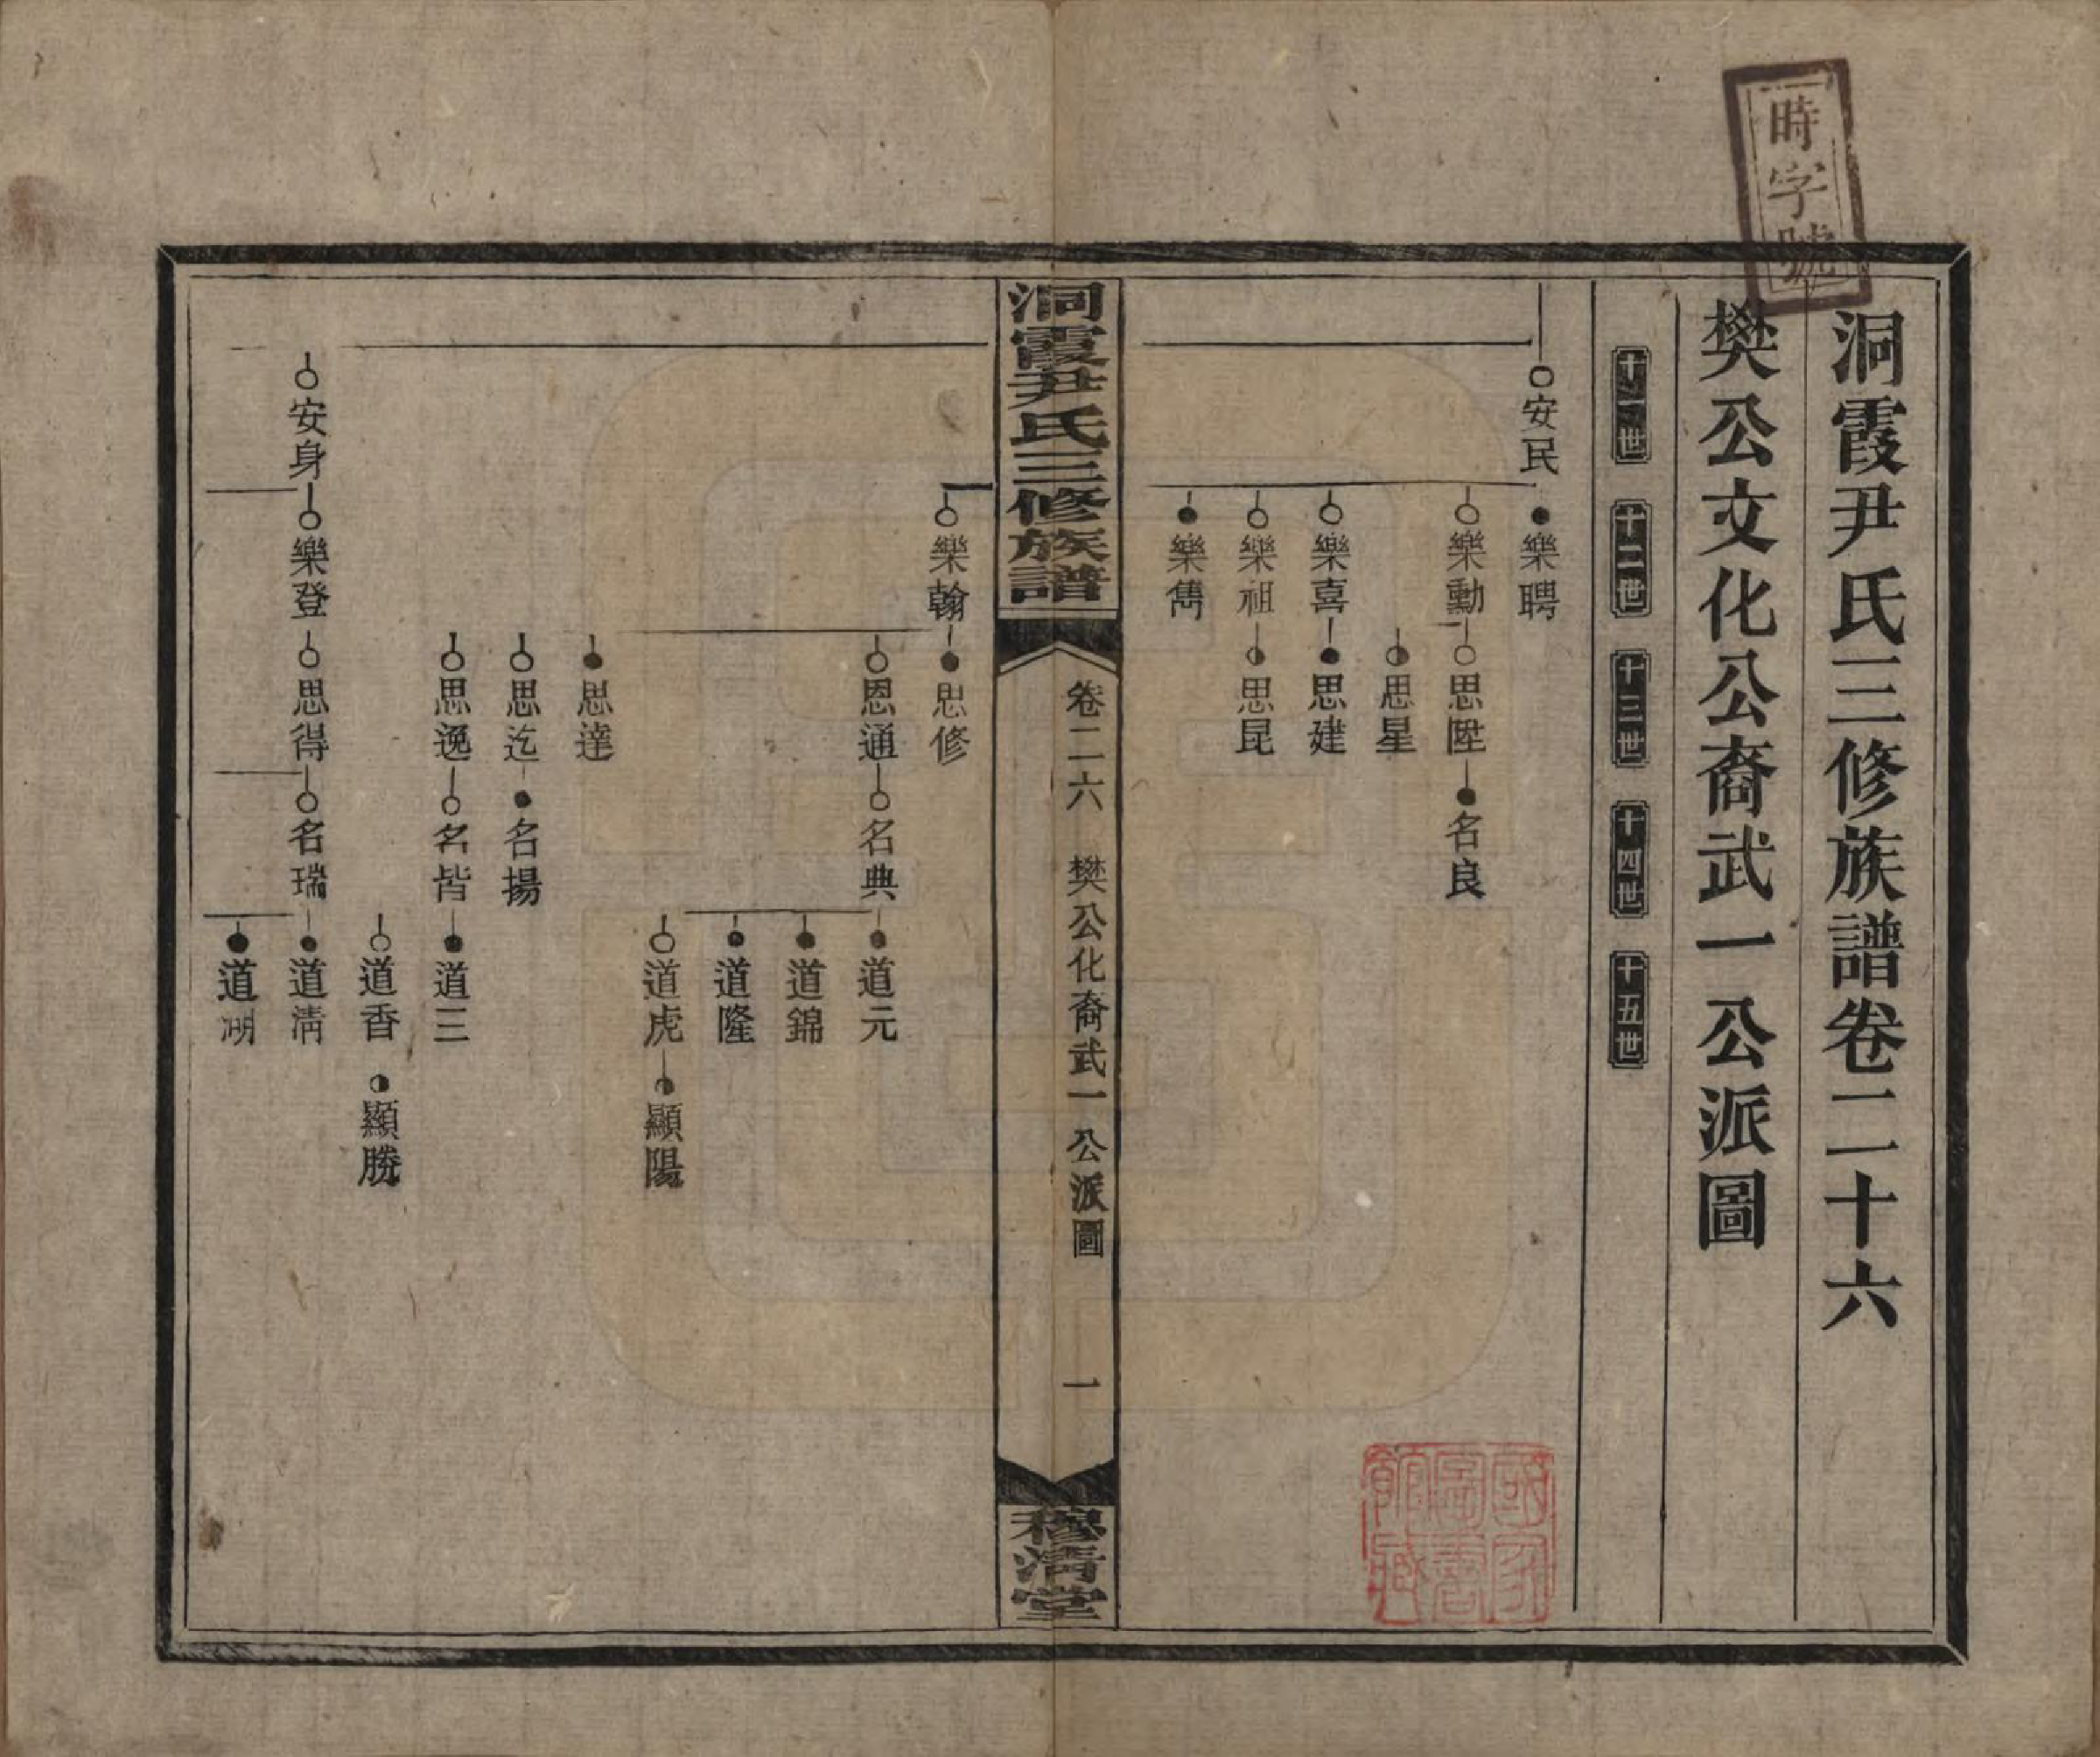 時字號
洞霞尹氏三修族譜卷二十六
樊公文化公裔武一公派圖
十一世 十二世 十三世 十四世 十五世
安民 樂聘
樂勳 思陞 名良
思星
樂喜 思建
樂祖 思昆
樂雋
洞霞尹氏三修族譜 卷二六 樊公化裔武一公派圖 一 穆清堂
樂翰 思修
恩通 名典 道元
道錦
道隆
道虎 顯陽
思達
思迄 名揚
思逸 名皆 道三
道香 顯勝
安身 樂登 思得 名瑞 道清
道湖
國家圖書館藏